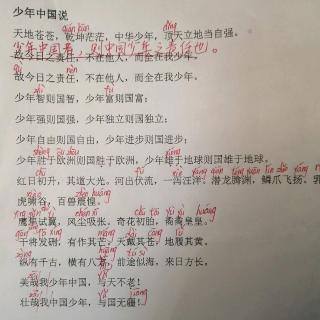 少年中国说
天地苍苍，乾坤茫茫，中华少年，顶天立地当自强。
少年中国者，则中国少年之责任也。
故今日之责任，不在他人，而全在我少年。
故今日之责任，不在他人，而全在我少年。
少年智则国智，少年富则国富；
少年强则国强，少年独立则国独立；
少年自由则国自由，少年进步则国进步；
少年胜于欧洲则国胜于欧洲，少年雄于地球则国雄于地球。
红日初升，其道大光。河出伏流，一泻汪洋。潜龙腾渊，鳞爪飞扬。乳
虎啸谷，百兽震惶。
鹰隼试翼，风尘吸张。奇花初胎，矞矞皇皇。
干将发硎，有作其芒。天戴其苍，地履其黄。
纵有千古，横有八荒，前途似海，来日方长。
美哉我少年中国，与天不老！
壮哉我中国少年，与国无疆！